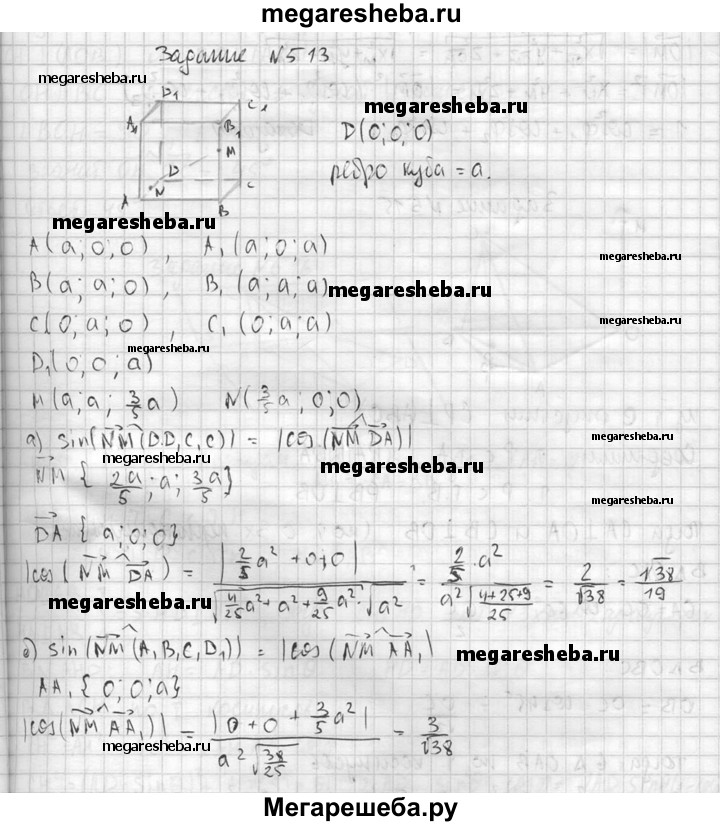 megaresheba.ru
Задание №513
megaresheba.ru
D1 C1
megaresheba.ru
A1 B1
D(0;0;0)
M
ребро куба = a.
D
N C
A B
megaresheba.ru
A(a;0;0), A1(a;0;a)
megaresheba.ru
B(a;a;0), B1(a;a;a)
megaresheba.ru
C(0;a;0), C1(0;a;a)
megaresheba.ru
megaresheba.ru
D1(0;0;a)
M(a;a; 3/5 a) N(3/5 a; 0; 0)
megaresheba.ru
а) sin(NM (D1D1C1C)) = |cos(NM DA)|
megaresheba.ru
NM { 2a/5; a; 3a/5 }
megaresheba.ru
DA {a;0;0}
megaresheba.ru
|cos(NM DA) = |2/5 a² + 0+0| / √(4/25 a² + a² + 9/25 a²) · √a² = 2/5 · a² / a² √((4+25+9)/25) = 2/√38 = √38/19
megaresheba.ru
б) sin(NM (A1B1C1D1)) = |cos(NM AA1)
megaresheba.ru
AA1 {0;0;a}
|cos(NM AA1)| = |0+0+ 3/5 a²| / a² √(38/25) = 3/√38
megaresheba.ru
Мегарешеба.ру